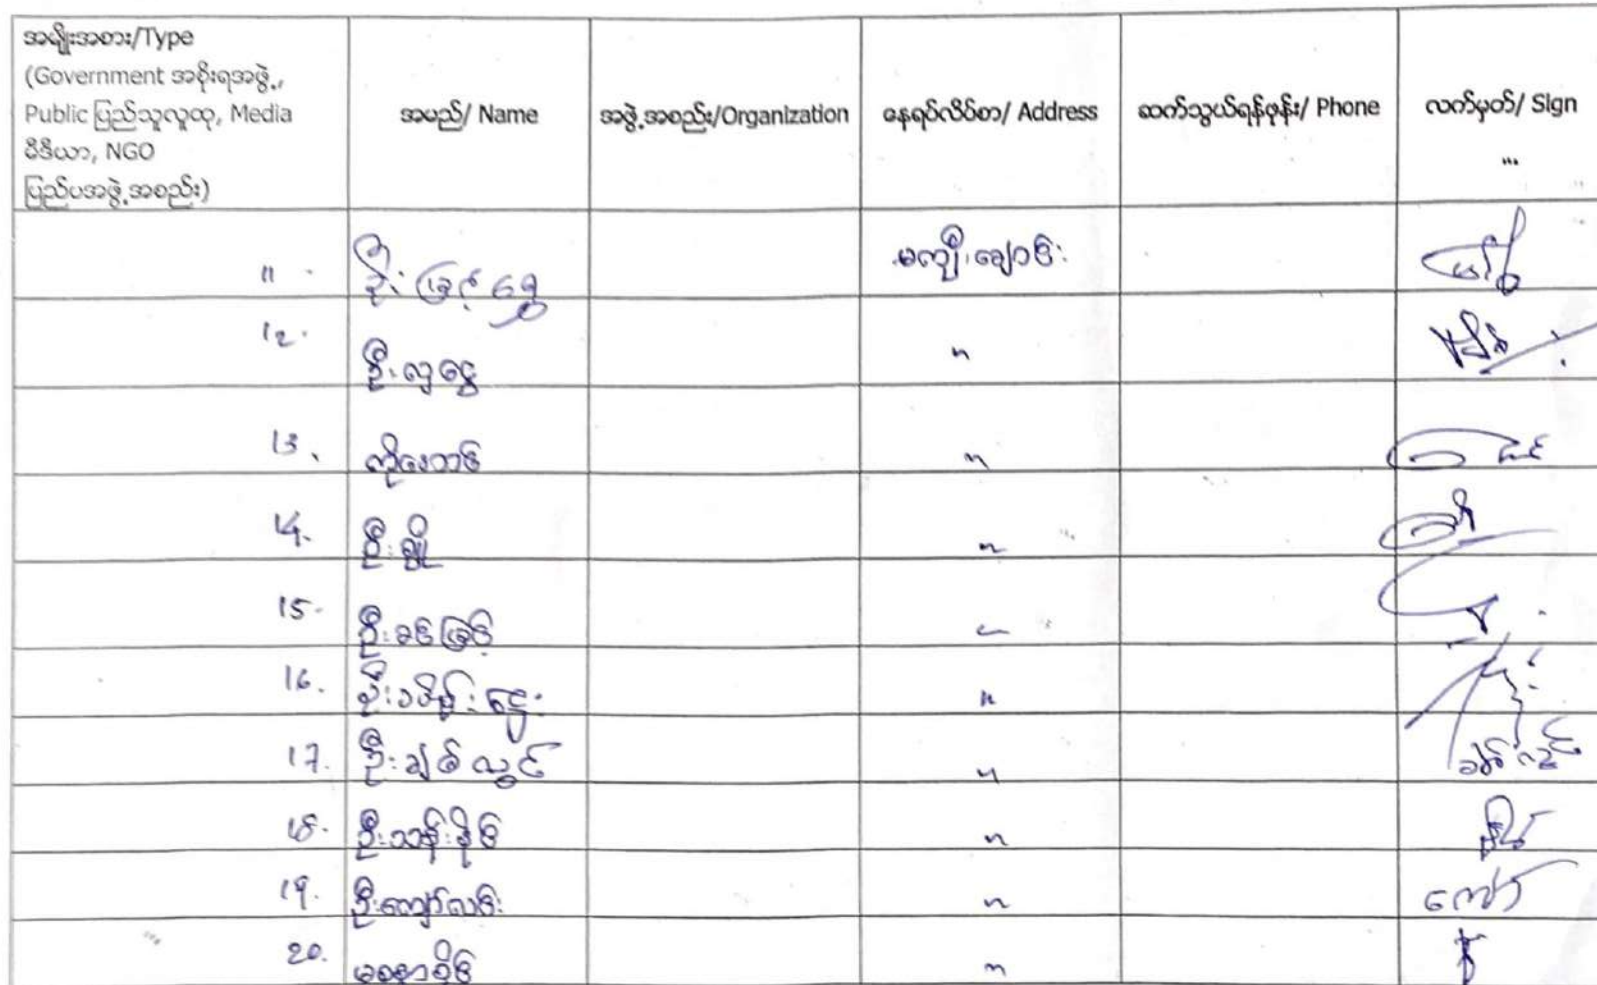 အမျိုးအစား/Type
(Government အစိုးရအဖွဲ့,
Public ပြည်သူလူထု, Media
မီဒီယာ, NGO
ပြည်ပအဖွဲ့အစည်း)
အမည်/ Name
အဖွဲ့အစည်း/Organization
နေရပ်လိပ်စာ/ Address
ဆက်သွယ်ရန်ဖုန်း/ Phone
လက်မှတ်/ Sign
...
11 - ဦးမြင့်ရွှေ မကျီးချောင်း
12. ဦးလှငွေ "
13. ကိုအေးတင် "
14. ဦးချို "
15. ဦးခင်မြင့် "
16. ဦးသိန်းဌေး "
17. ဦးချစ်လွင် "
18. ဦးသန်းနိုင် "
19. ဦးကျော်လင်း " ကျော်
20. "